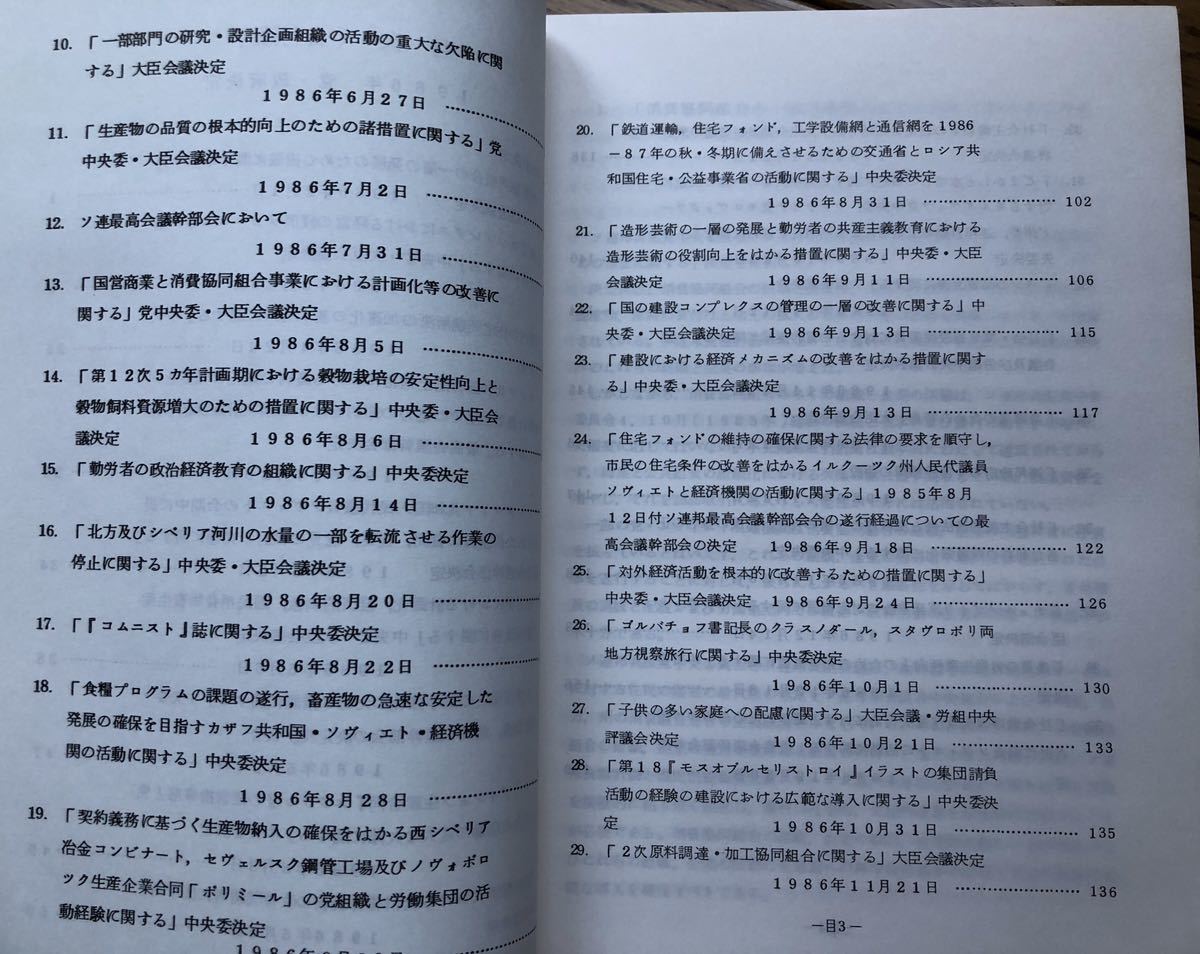 10. 「一部部門の研究・設計企画組織の活動の重大な欠陥に関
する」大臣会議決定
1986年6月27日 ……………
11. 「生産物の品質の根本的向上のための諸措置に関する」党
中央委・大臣会議決定
1986年7月2日 ……………
12. ソ連最高会議幹部会において
1986年7月31日 ……………
13. 「国営商業と消費協同組合事業における計画化等の改善に
関する」党中央委・大臣会議決定
1986年8月5日 ……………
14. 「第12次5カ年計画期における穀物栽培の安定性向上と
穀物飼料資源増大のための措置に関する」中央委・大臣会
議決定 1986年8月6日 ……………
15. 「動労者の政治経済教育の組織に関する」中央委決定
1986年8月14日 ……………
16. 「北方及びシベリア河川の水量の一部を転流させる作業の
停止に関する」中央委・大臣会議決定
1986年8月20日 ……………
17. 「『コムニスト』誌に関する」中央委決定
1986年8月22日 ……………
18. 「食糧プログラムの課題の遂行，畜産物の急速な安定した
発展の確保を目指すカザフ共和国・ソヴィエト・経済機
関の活動に関する」中央委決定
1986年8月28日 ……………
19. 「契約義務に基づく生産物納入の確保をはかる西シベリア
冶金コンビナート，セヴェルスク鋼管工場及びノヴォポロ
ツク生産企業合同「ポリミール」の党組織と労働集団の活
動経験に関する」中央委決定
20. 「鉄道運輸，住宅フォンド，工学設備網と通信網を1986
－87年の秋・冬期に備えさせるための交通省とロシア共
和国住宅・公益事業省の活動に関する」中央委決定
1986年8月31日 …………………… 102
21. 「造形芸術の一層の発展と動労者の共産主義教育における
造形芸術の役割向上をはかる措置に関する」中央委・大臣
会議決定 1986年9月11日 …………………… 106
22. 「国の建設コンプレクスの管理の一層の改善に関する」中
央委・大臣会議決定 1986年9月13日 …………………… 115
23. 「建設における経済メカニズムの改善をはかる措置に関す
る」中央委・大臣会議決定
1986年9月13日 …………………… 117
24. 「住宅フォンドの維持の確保に関する法律の要求を順守し，
市民の住宅条件の改善をはかるイルクーツク州人民代議員
ソヴィエトと経済機関の活動に関する」1985年8月
12日付ソ連邦最高会議幹部会令の遂行経過についての最
高会議幹部会の決定 1986年9月18日 …………………… 122
25. 「対外経済活動を根本的に改善するための措置に関する」
中央委・大臣会議決定 1986年9月24日 …………………… 126
26. 「ゴルバチョフ書記長のクラスノダール，スタヴロポリ両
地方視察旅行に関する」中央委決定
1986年10月1日 …………………… 130
27. 「子供の多い家庭への配慮に関する」大臣会議・労組中央
評議会決定 1986年10月21日 …………………… 133
28. 「第18『モスオブルセリストロイ』イラストの集団請負
活動の経験の建設における広範な導入に関する」中央委決
定 1986年10月31日 …………………… 135
29. 「2次原料調達・加工協同組合に関する」大臣会議決定
1986年11月21日 …………………… 136
―目3―